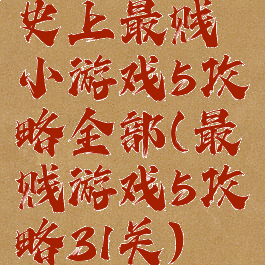 史上最贱
小游戏5攻
略全部(最
贱游戏5攻
略31关)